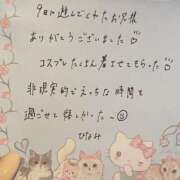 9日に遊んでくれたお兄様
ありがとうございました♡
コスプレたくさん着させてもらった♡
非現実的でえっちな時間を
過ごせて楽しかった〜☺
ひなみ